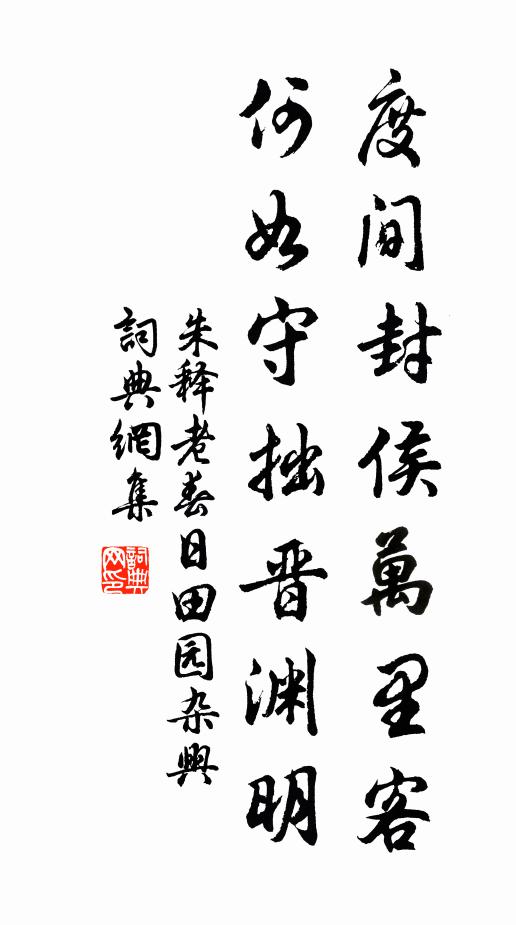 度间封侯萬里客
何如守拙晋渊明
朱释老春日田园杂興
詞典網集
詞典網印